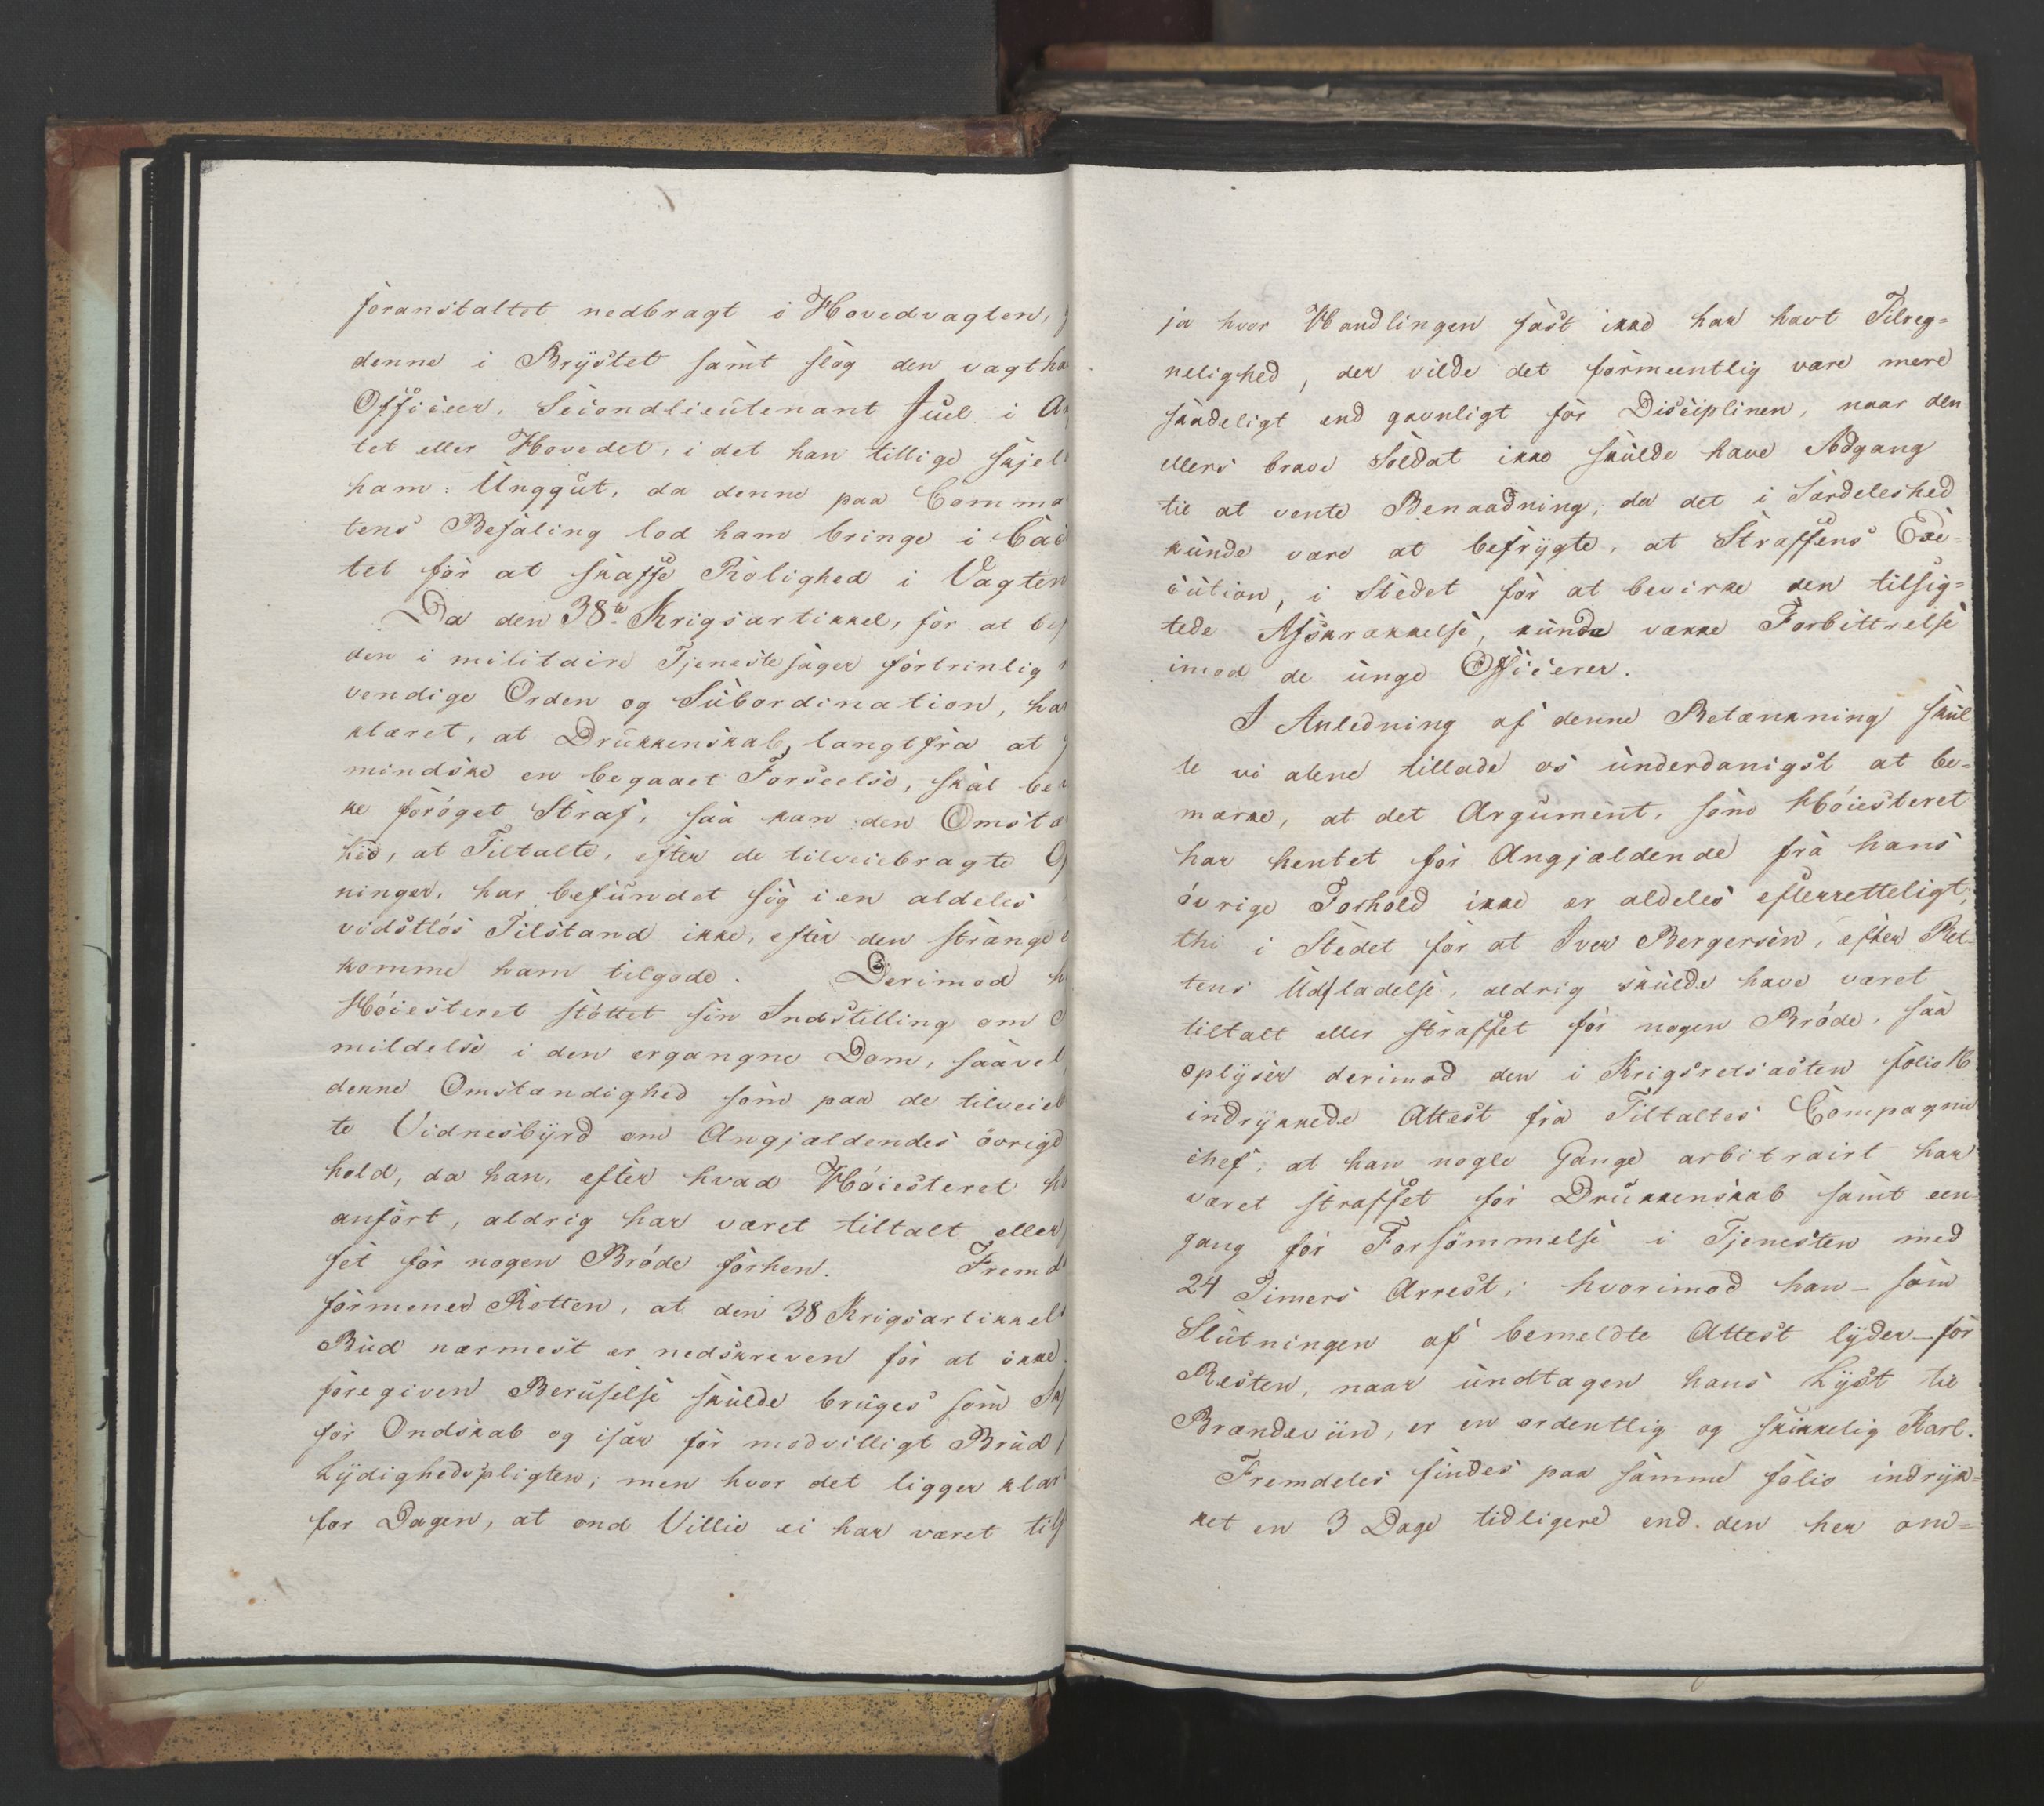 foranstaltet nedbragt i Hovedvagten,
denne i Brystet samt slog den vagtha
Officeer, Secondlieutenant Juel i An
tet eller Hovedet, i det han tillige skjel
ham: Unggut, da denne paa Comma
tens Befaling lod ham bringe i Cac
tet for at skaffe Rolighed i Vagten
Da den 38te Krigsartikkel, for at be
den i militaire Tjenestesager fortrinlig
vendige Orden og Subordination, har
klæret, at Drukkenskab, langtfra at
mindske en begaaet Forseelse, skal be
ke forøget Straf, saa kan den Omstæ
hed, at Tiltalte, efter de tilveiebragte O
ninger, har befundet sig i en aldeles
vidstløs Tilstand ikke, efter den strænge
komme ham tilgode. Derimod h
Høiesteret støttet sin Indstilling om
mildelse i den ergangne Dom, saavel
denne Omstændighed som paa de tilveieb
te Vidnesbyrd om Angjældendes øvrige
hold, da han, efter hvad Høiesteret h
anført, aldrig har været tiltalt eller
fet for nogen Brøde forhen. Fremd
formener Retten, at den 38 Krigsartikkels
Bud nærmest er nedskreven for at ikke
foregiven Beruselse skulde bruges som Sk
for Ondskab og især for modvilligt Brud
Lydighedspligten; men hvor det ligger klar
for Dagen, at ond Villie ei har været til
ja hvor Handlingen fast ikke har havt Tilreg=
nelighed, der vilde det formeentlig være mere
skadeligt end gavnligt for Disciplinen, naar den
ellers brave Soldat ikke skulde have Adgang
til at vente Benaadning, da det i Særdeleshed
kunde være at befrygte, at Straffens Exe=
cution, i Stedet for at bevirke den tilsig=
tede Afskrækkelse, kunde vække Forbittrelse
imod de unge Officerer.
I Anledning af denne Betænkning skul
le vi alene tillade os underdanigst at be=
mærke, at det Argument, som Høiesteret
har hentet for Angjældende fra hans
øvrige Forhold ikke er aldeles efterretteligt;
thi i Stedet for at Iver Bergersen, efter Ret-
tens Udladelse, aldrig skulde have været
tiltalt eller straffet for nogen Brøde, saa
oplyser derimod den i Krigsretsacten folio 16
indrykkede Attest fra Tiltaltes Compagnie
chef, at han nogle Gange arbitrairt har
været straffet for Drukkenskab samt een
gang for Forsømmelse i Tjenesten med
24 Timers Arrest; hvorimod han - som
Slutningen af bemeldte Attest lyder - for
Resten, naar undtagen hans Lyst til
Brændeviin, er en ordentlig og skikkelig Karl.
Fremdeles findes paa samme folio indryk=
ket en 3 Dage tidligere end den her om=